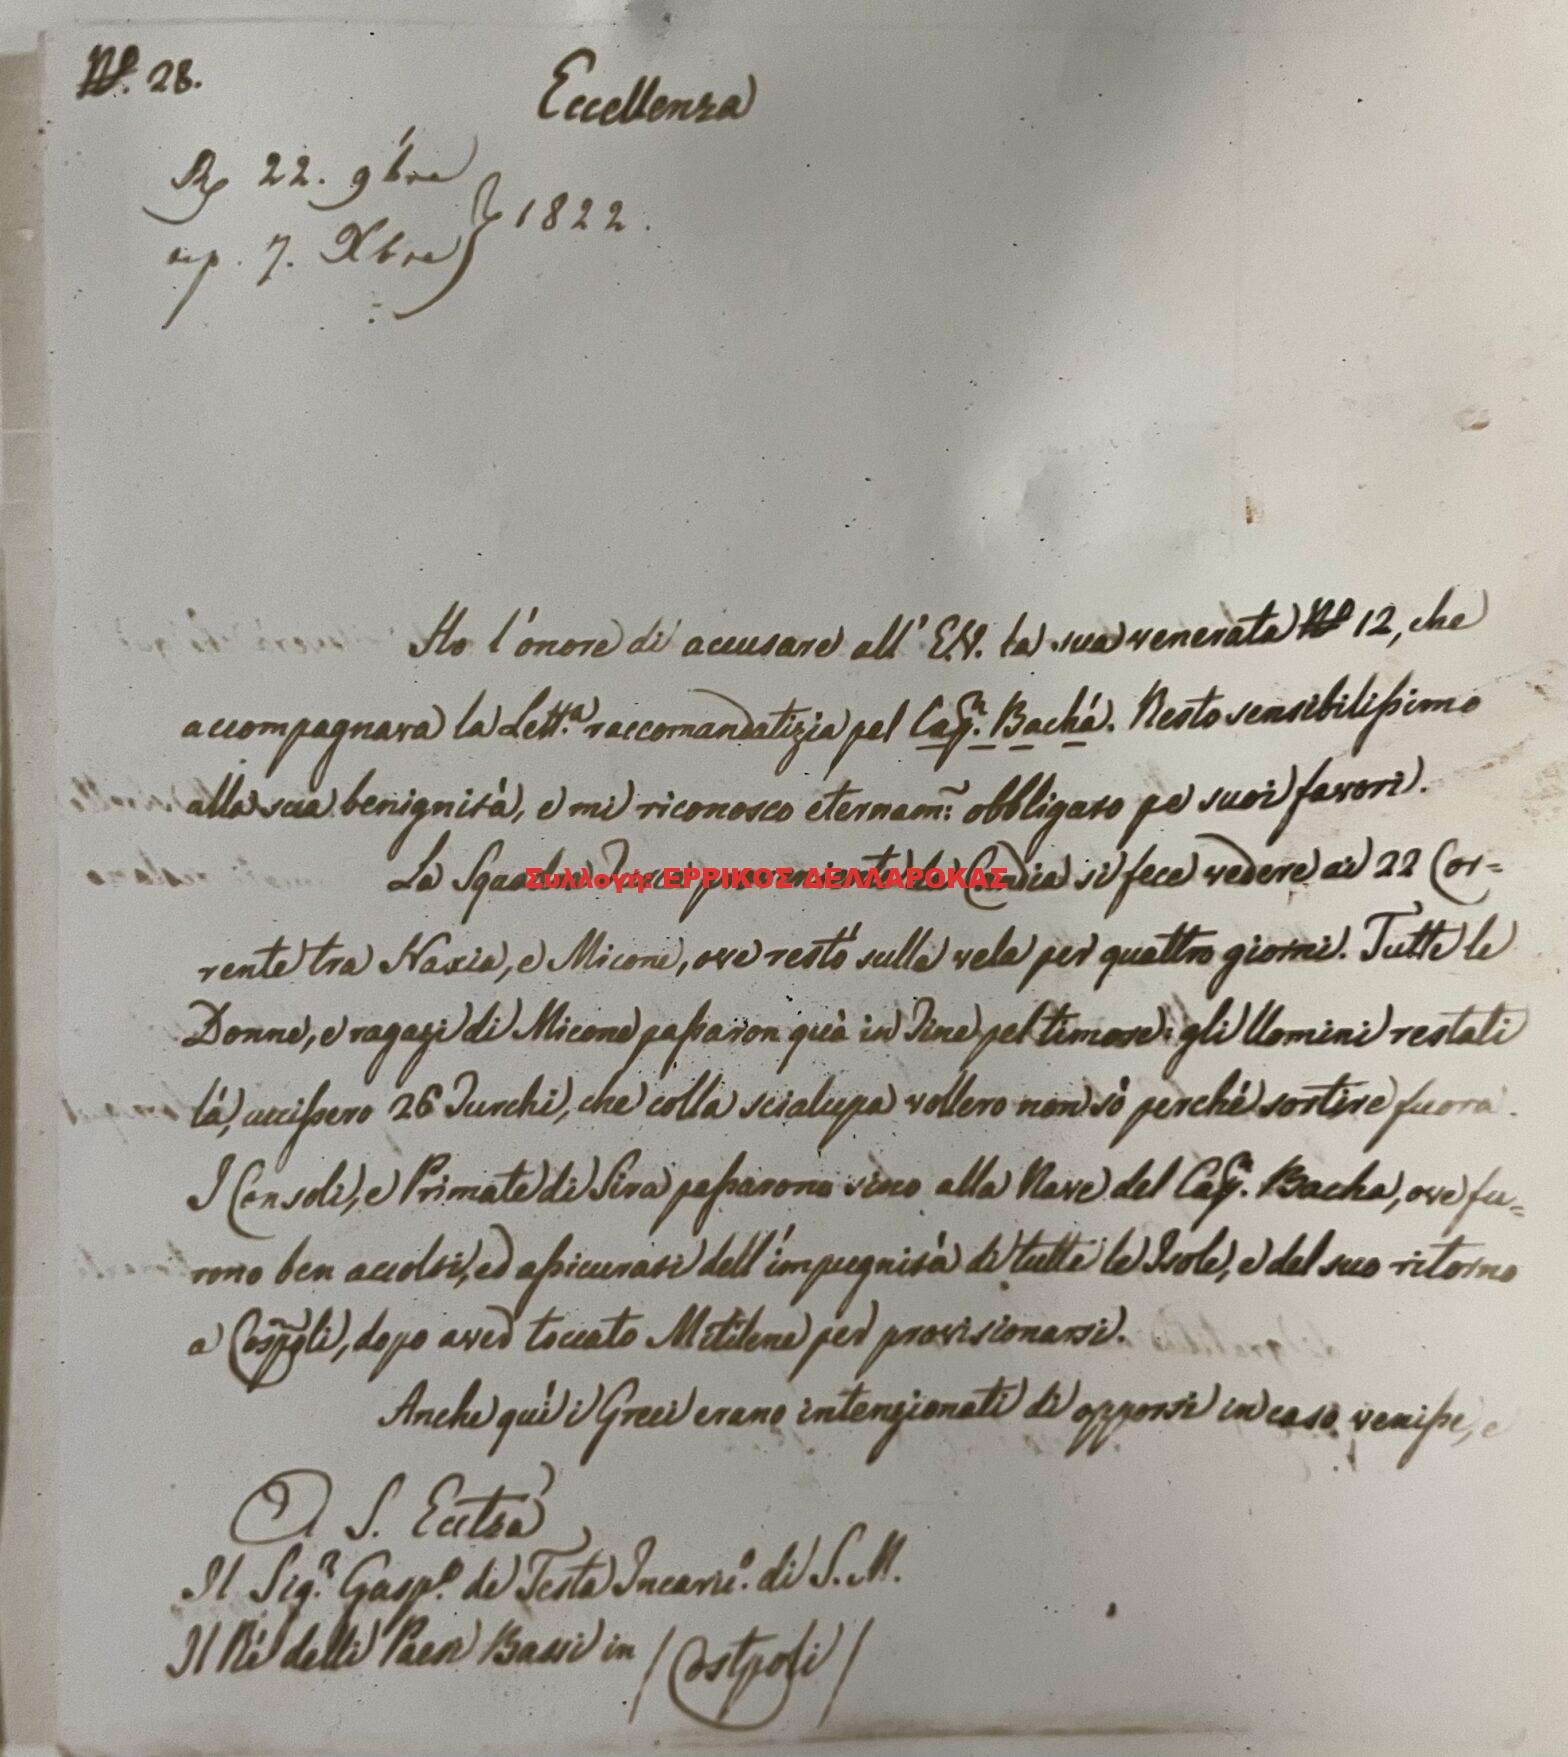 N.º 28.
Eccellenza
Rp 22. 9bre
rep. 7. Xbre } 1822.
Ho l'onore di accusare all' E.V. la sua venerata Nº 12, che
accompagnava la Lett.ª raccomandatizia pel Capⁿ. Bachá. Resto sensibilissimo
alla sua benignità, e mi riconosco eternam: obbligato pe suoi favori.
La Candia si fece vedere ai 22 Cor=
Συλλογή: ΕΡΡΙΚΟΣ ΔΕΛΛΑΡΟΚΑΣ
rente tra Naxia, e Micone, ove restó sulla vela per quattro giorni. Tutte le
Donne, e ragazzi di Micone passaron quà in Tine pel timore: gli Uomini restati
là, uccissero 26 Turchi, che colla scialupa vollero non sò perché sortire fuora.
I Consoli, e Primate di Sira passarono sino alla Nave del Capⁿ. Bacha, ove fu=
rono ben accolti, ed assicurati dell' impugnità di tutte le Isole, e del suo ritorno
a Cosp̃oli, dopo aver toccato Mitilene per provisionarsi.
Anche quì i Greci erano intenzionati di opporsi in caso venisse, e
A S. Ecclza
Il Sig.ʳ Gasp.º de Testa Incaric.º di S. M.
Il Ré delli Paesi Bassi in / Costpoli /